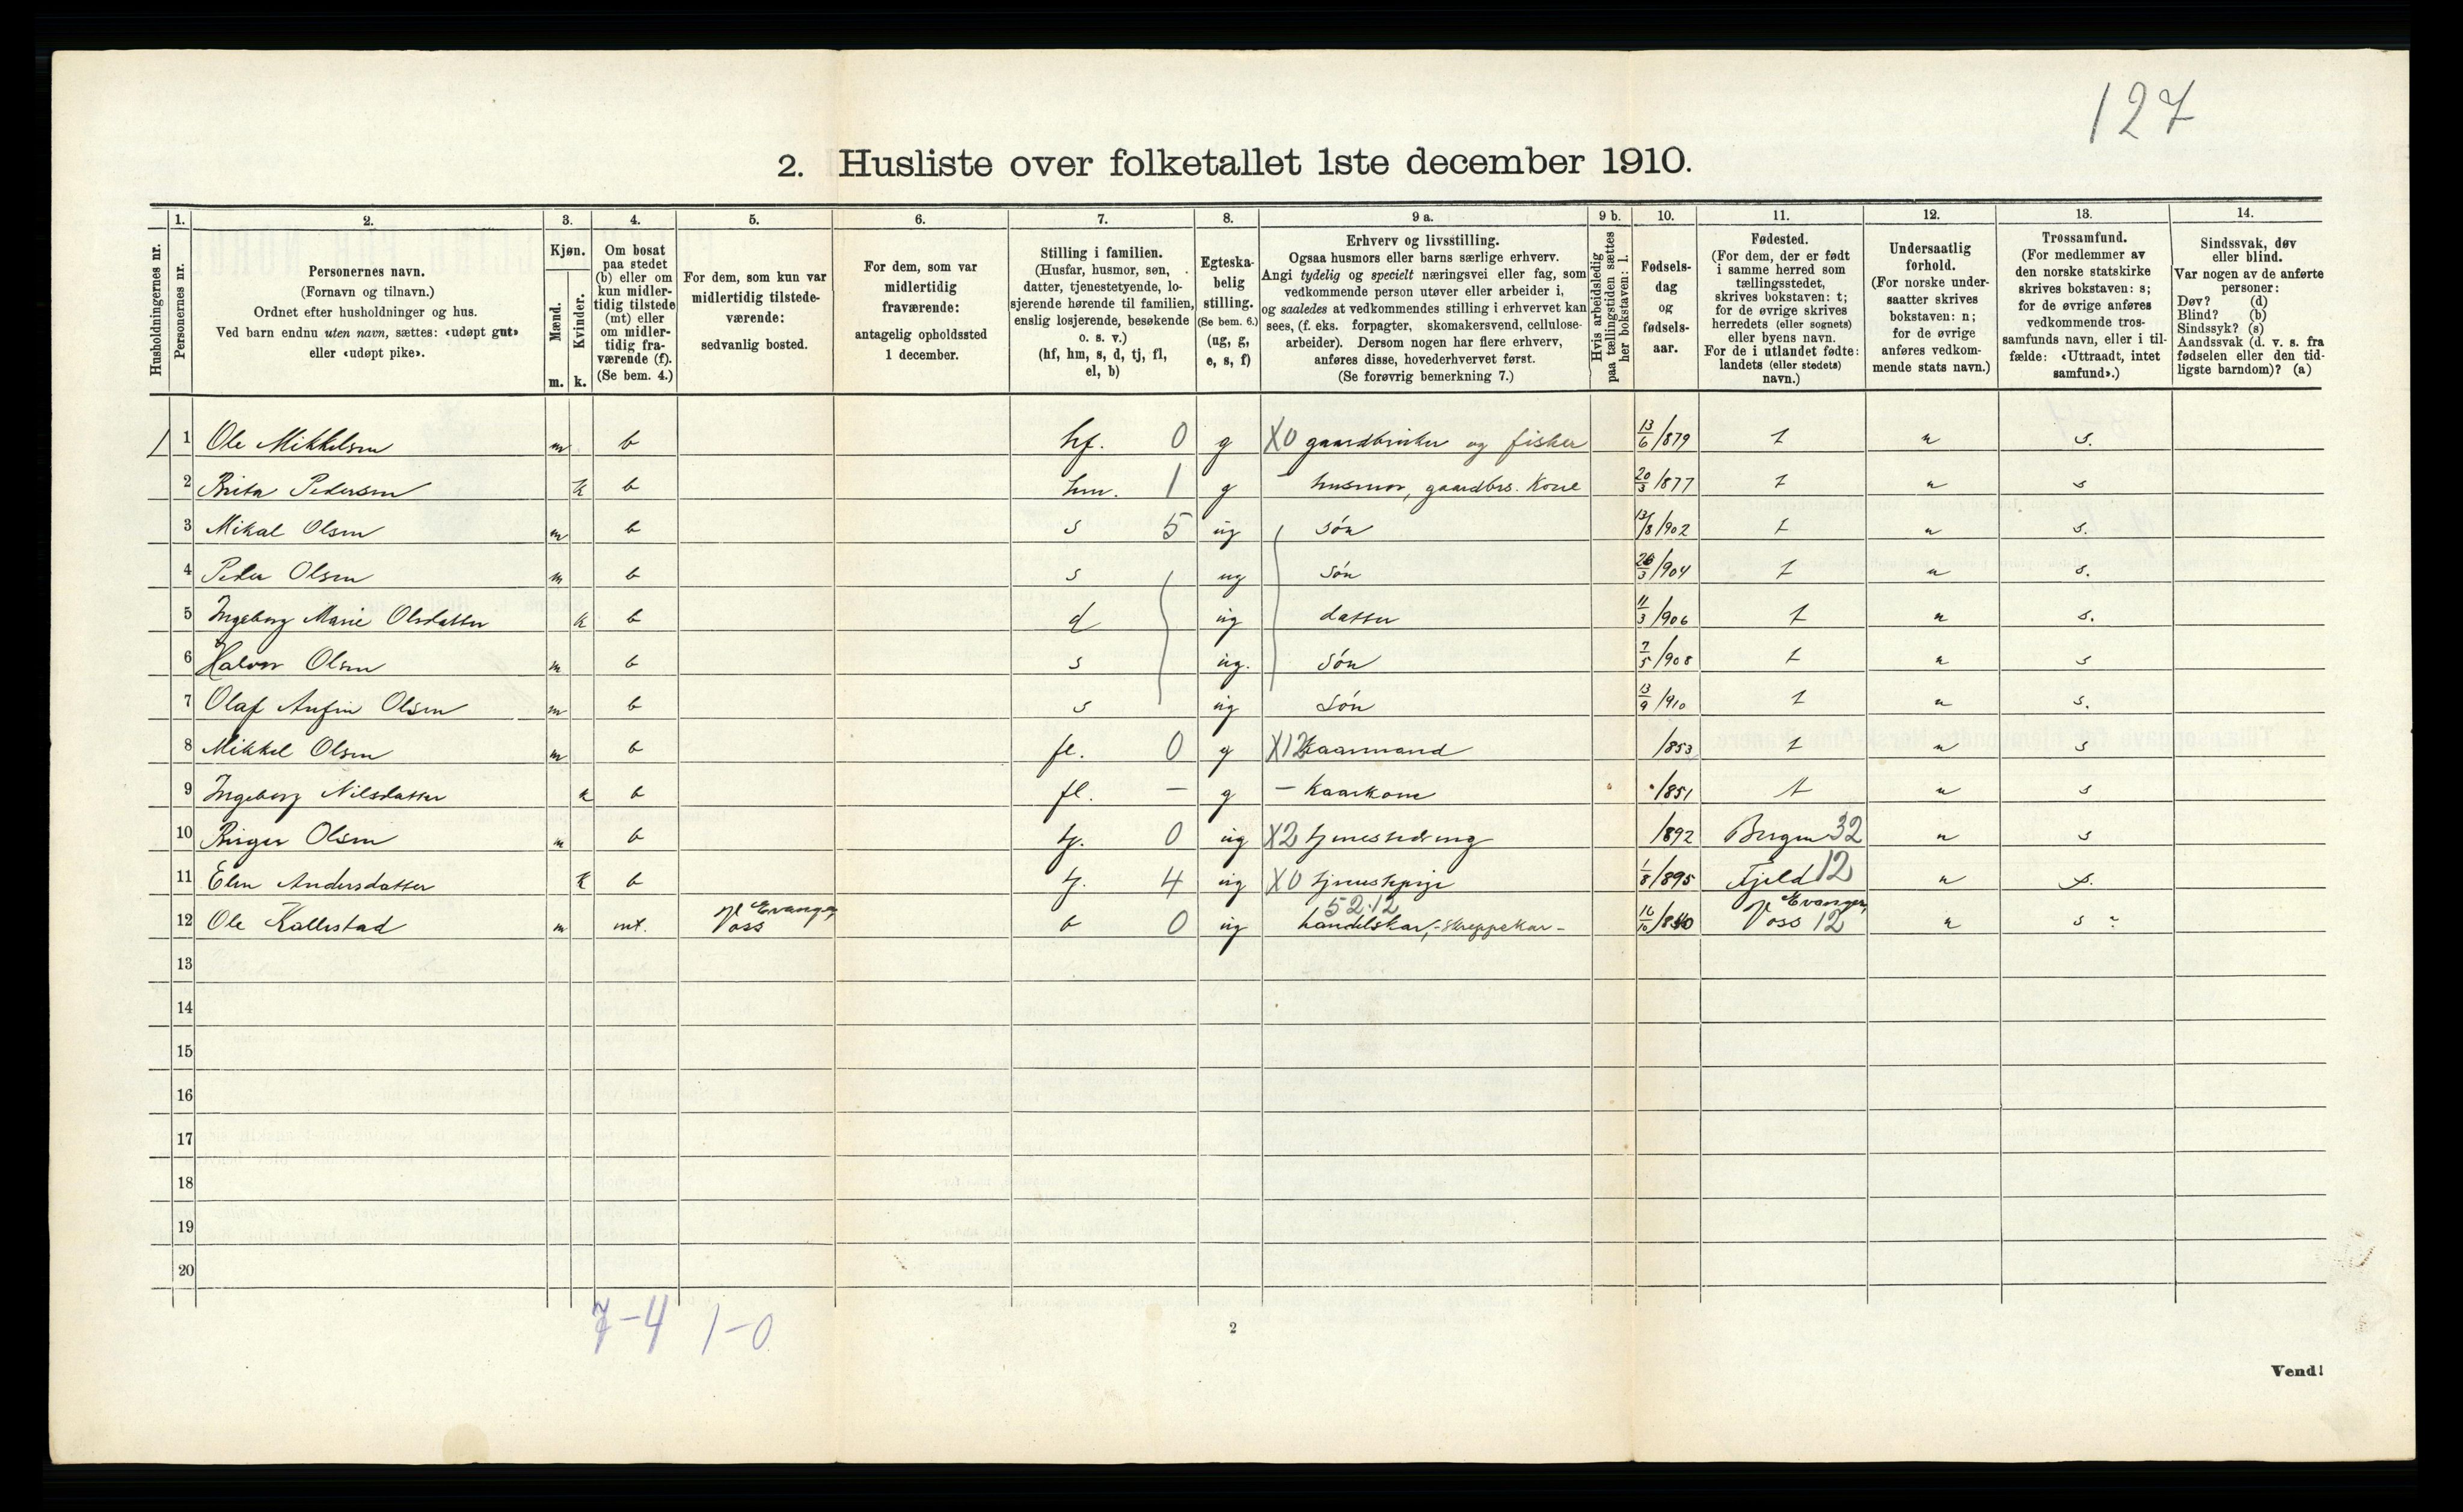 127
2. Husliste over folketallet 1ste december 1910.
Husholdningernes nr.
1.
Personernes nr.
2.
Personernes navn.
(Fornavn og tilnavn.)
Ordnet efter husholdninger og hus.
Ved barn endnu uten navn, sættes: «udøpt gut»
eller «udøpt pike».
3.
Kjøn.
Mænd.
Kvinder.
m. k.
4.
Om bosat
paa stedet
(b) eller om
kun midler-
tidig tilstede
(mt) eller
om midler-
tidig fra-
værende (f).
(Se bem. 4.)
5.
For dem, som kun var
midlertidig tilstede-
værende:
sedvanlig bosted.
6.
For dem, som var
midlertidig
fraværende:
antagelig opholdssted
1 december.
7.
Stilling i familien.
(Husfar, husmor, søn,
datter, tjenestetyende, lo-
sjerende hørende til familien,
enslig losjerende, besøkende
o. s. v.)
(hf, hm, s, d, tj, fl,
el, b)
8.
Egteska-
belig
stilling.
(Se bem. 6.)
(ug, g,
e, s, f)
9 a.
Erhverv og livsstilling.
Ogsaa husmors eller barns særlige erhverv.
Angi tydelig og specielt næringsvei eller fag, som
vedkommende person utøver eller arbeider i,
og saaledes at vedkommendes stilling i erhvervet kan
sees, (f. eks. forpagter, skomakersvend, cellulose-
arbeider). Dersom nogen har flere erhverv,
anføres disse, hovederhvervet først.
(Se forøvrig bemerkning 7.)
9 b.
Hvis arbeidsledig
paa tællingstiden sættes
her bokstaven: l.
10.
Fødsels-
dag
og
fødsels-
aar.
11.
Fødested.
(For dem, der er født
i samme herred som
tællingsstedet,
skrives bokstaven: t;
for de øvrige skrives
herredets (eller sognets)
eller byens navn.
For de i utlandet fødte:
landets (eller stedets)
navn.)
12.
Undersaatlig
forhold.
(For norske under-
saatter skrives
bokstaven: n;
for de øvrige
anføres vedkom-
mende stats navn.)
13.
Trossamfund.
(For medlemmer av
den norske statskirke
skrives bokstaven: s;
for de øvrige anføres
vedkommende tros-
samfunds navn, eller i til-
fælde: «Uttraadt, intet
samfund».)
14.
Sindssvak, døv
eller blind.
Var nogen av de anførte
personer:
Døv? (d)
Blind? (b)
Sindssyk? (s)
Aandssvak (d. v. s. fra
fødselen eller den tid-
ligste barndom)? (a)
1 1 Ole Mikkelsen m b hf. 0 g X0 gaardbruker og fisker 13/6/879 t n s.
2 Brita Pedersen k b hm. 1 g – husmor, gaardbrs. Kone 20/3/877 t n s
3 Mikal Olsen m b s 5 ug søn 13/8/902 t n s.
4 Peder Olsen m b s ug søn 26/3/904 t n s.
5 Ingeborg Marie Olsdatter k b d ug datter 11/3/906 t n s.
6 Halvor Olsen m b s ug. søn 7/5/908 t n s
7 Olaf Anfin Olsen m b s ug søn 13/9/910 t n s.
8 Mikkel Olsen m b fl. 0 g X12 Kaarmand /853 t n s
9 Ingeborg Nilsdatter k b fl. – g – Kaarkone /851 t n s
10 Birger Olsen m b tj. 0 ug X2 tjenestedreng /892 Bergen 32 n s
11 Elen Andersdatter k b tj. 4 ug X0 tjenestepige 1/8/895 Fjeld 12 n s.
12 Ole Kallestad m mt. Evanger, Voss b 0 ug 52.12 handelskar, -Skreppekar- 16/10/840 Evanger, Voss 12 n s
13
14
15
16
17
18
19
20
7-4 1-0
2
Vend!